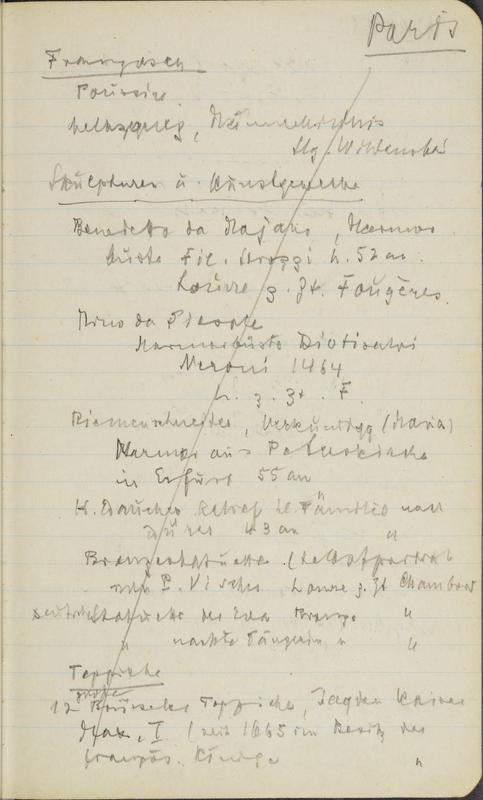 Paris
Französisch
Poussin
Velasquez,
Slg. Wildenstein
Skulpturen u. Kunstgewerbe
Benedetto da Majano, Marmor
büste Fil. Strozzi h. 52 cm
Louvre z. Zt. Fougères
Mino da Fiesole
Marmorbüste Diotisalvi
Neroni 1464
L. z. Zt. F.
Riemenschneider, Verkündigg (Maria)
Marmor aus Peterskirche
in Erfurt 55 cm
H. Daucher Relief hl Familie nach
Dürer 43 cm "
Bronzestatuette (Selbstportrait
von P. Vischer, Louvre z. Zt Chambord
Statuette der Eva Bronze "
" nackte Tänzerin " "
Teppiche
große
12 Brüsseler Teppiche, Jagden Kaiser
Max. I (seit 1665 im Besitz der
französ. Könige "